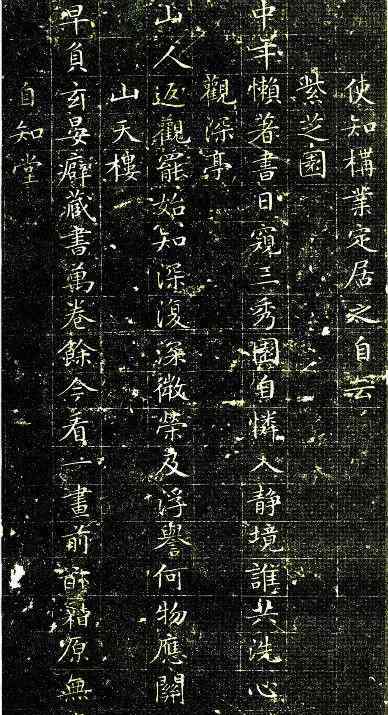 使知構業定居之自云
紫芝園
中年懶著書日窺三秀園自憐入静境誰共洗心
觀深亭
山人返觀罷始知深復深微榮及浮譽何物應關
山天樓
早負玄晏癖藏書萬卷餘今看一畫前 原無
自知堂